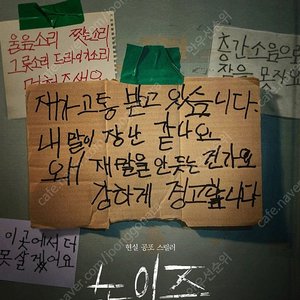 울음소리 짖는소리
그릇소리 드라이소리
멈춰주세요
층간소음으로
잠을 못자요
제가 고통 받고 있습니다.
내 말이 장난 같나요
왜 제 말을 안 듣는 건가요
강하게 경고합니다
이곳에서 더
못 살겠어요
현실 공포 스릴러
노이즈